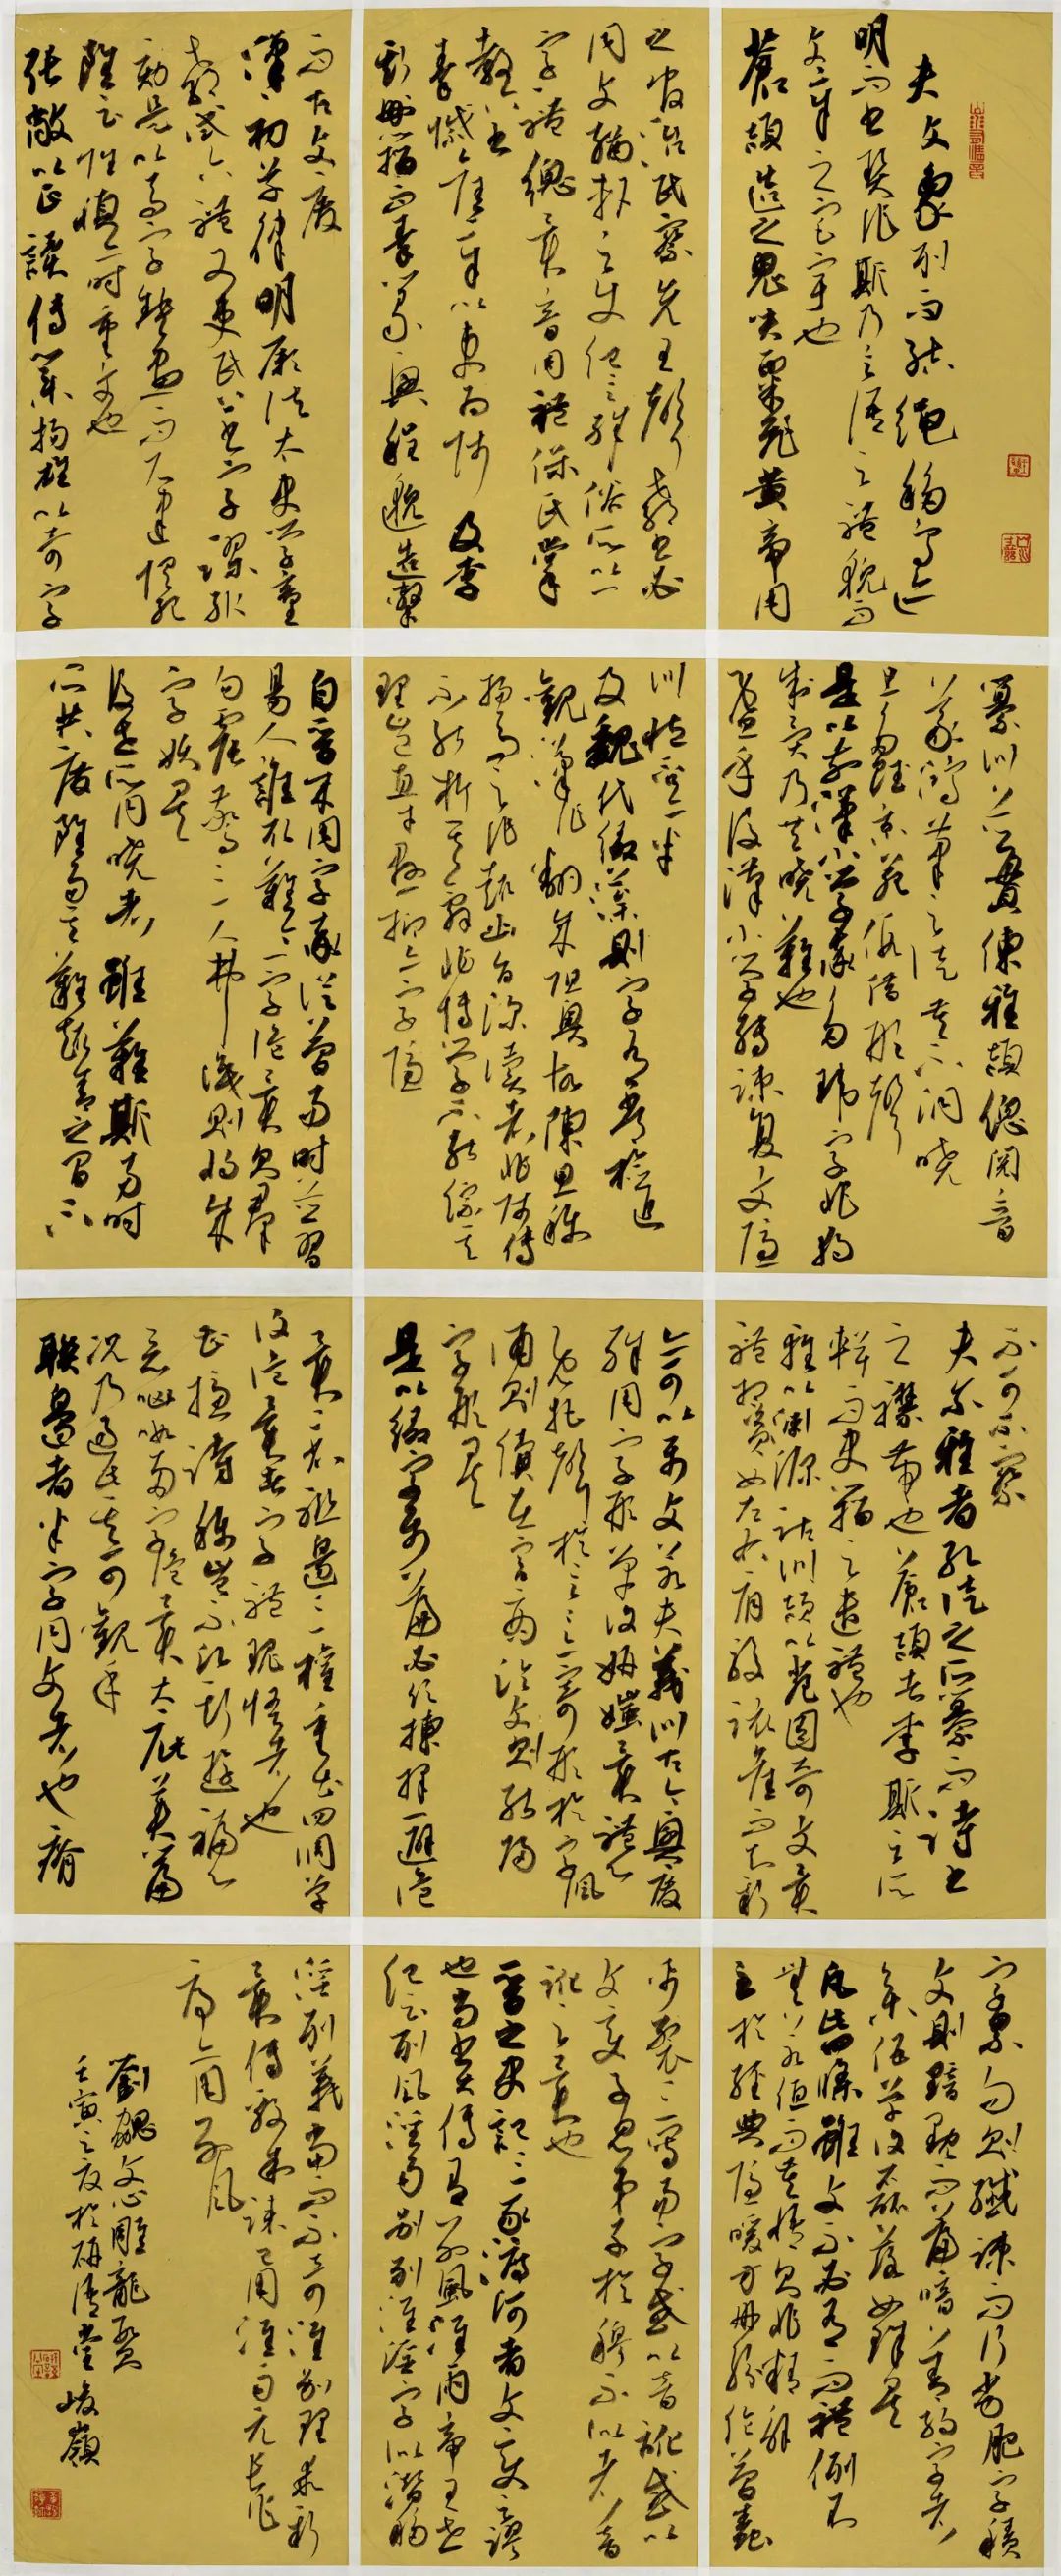 夫文象列而結繩移鳥迹
明而書契作斯乃言語之體貌而
文章之宅宇也
蒼頡造之鬼哭粟飛黃帝用
之官治民察先王聲教書必
同文輶軒之使紀言殊俗所以一
字體總異音周禮保氏掌
教六書
秦滅舊章以吏為師及李
斯刪籀而秦篆興程邈造隸
而古文廢
漢初草律明厥法太史學童
教試六體又吏民上書字謬輒
劾是以馬字缺畫而石建懼死
雖云性慎亦時重文也
張敞以正讀傳業揚雄以奇字
纂訓並貫練雅頡總閱音
義鴻筆之徒莫不洞曉
且多賦京苑假借形聲
是以前漢小學率多瑋字非獨
制異乃共曉難也
暨乎後漢小學轉疎復文隱
訓臧否亦半
及魏代綴藻則字有常檢追
觀漢作翻成阻奧故陳思稱
揚馬之作趣幽旨深讀者非師傳
不能析其辭非博學不能綜其
理豈直才懸抑亦字隱
自晉來用字率從簡易時並習
易人誰取難今一字詭異則群
句震驚三人弗識則將成
字妖矣
後世所同曉者雖難斯易時
所共廢雖易斯難趣舍之間不
不可不察
夫爾雅者孔徒之所纂而詩書
之襟帶也蒼頡者李斯之所
輯而史籀之遺體也
雅以淵源詁訓頡以苑囿奇文異
體相資如左右肩股該舊而知新
亦可以屬文若夫義訓古今興廢
殊用字形單複妍媸異體心
既托聲於言言寄形於字諷
誦則績在宮商臨文則能歸
字形矣
是以綴字屬篇必須揀擇一避詭
異二省聯邊三權重出四調單
複詭異者字體瑰怪者也
曹攄詩稱豈不願斯遊褊心
惡呶兩字詭異大疵美篇
況乃過此其可觀乎
聯邊者半字同文者也瘠
字累句則纖疎而行劣肥字積
文則黯黕而篇暗善酌字者
參伍單複磊落如珠矣
凡此四條雖文不必有而體例不
無若值而莫悟則非精解
至於經典隱曖方冊紛綸簡蠹
帛裂三寫易字或以音訛或以
文變子思弟子於穆不似者音
訛之異也
晉之史記三豕渡河者文變之謬
也尚書大傳有別風淮雨帝王世
紀云列風淫雨別列淮淫字似潛移
淫列義當而不奇淮別理乖新
異傅毅制誄已用淮雨元長作
序亦用別風
劉勰文心雕龍句
壬寅之夜於硯清堂 峻嶺